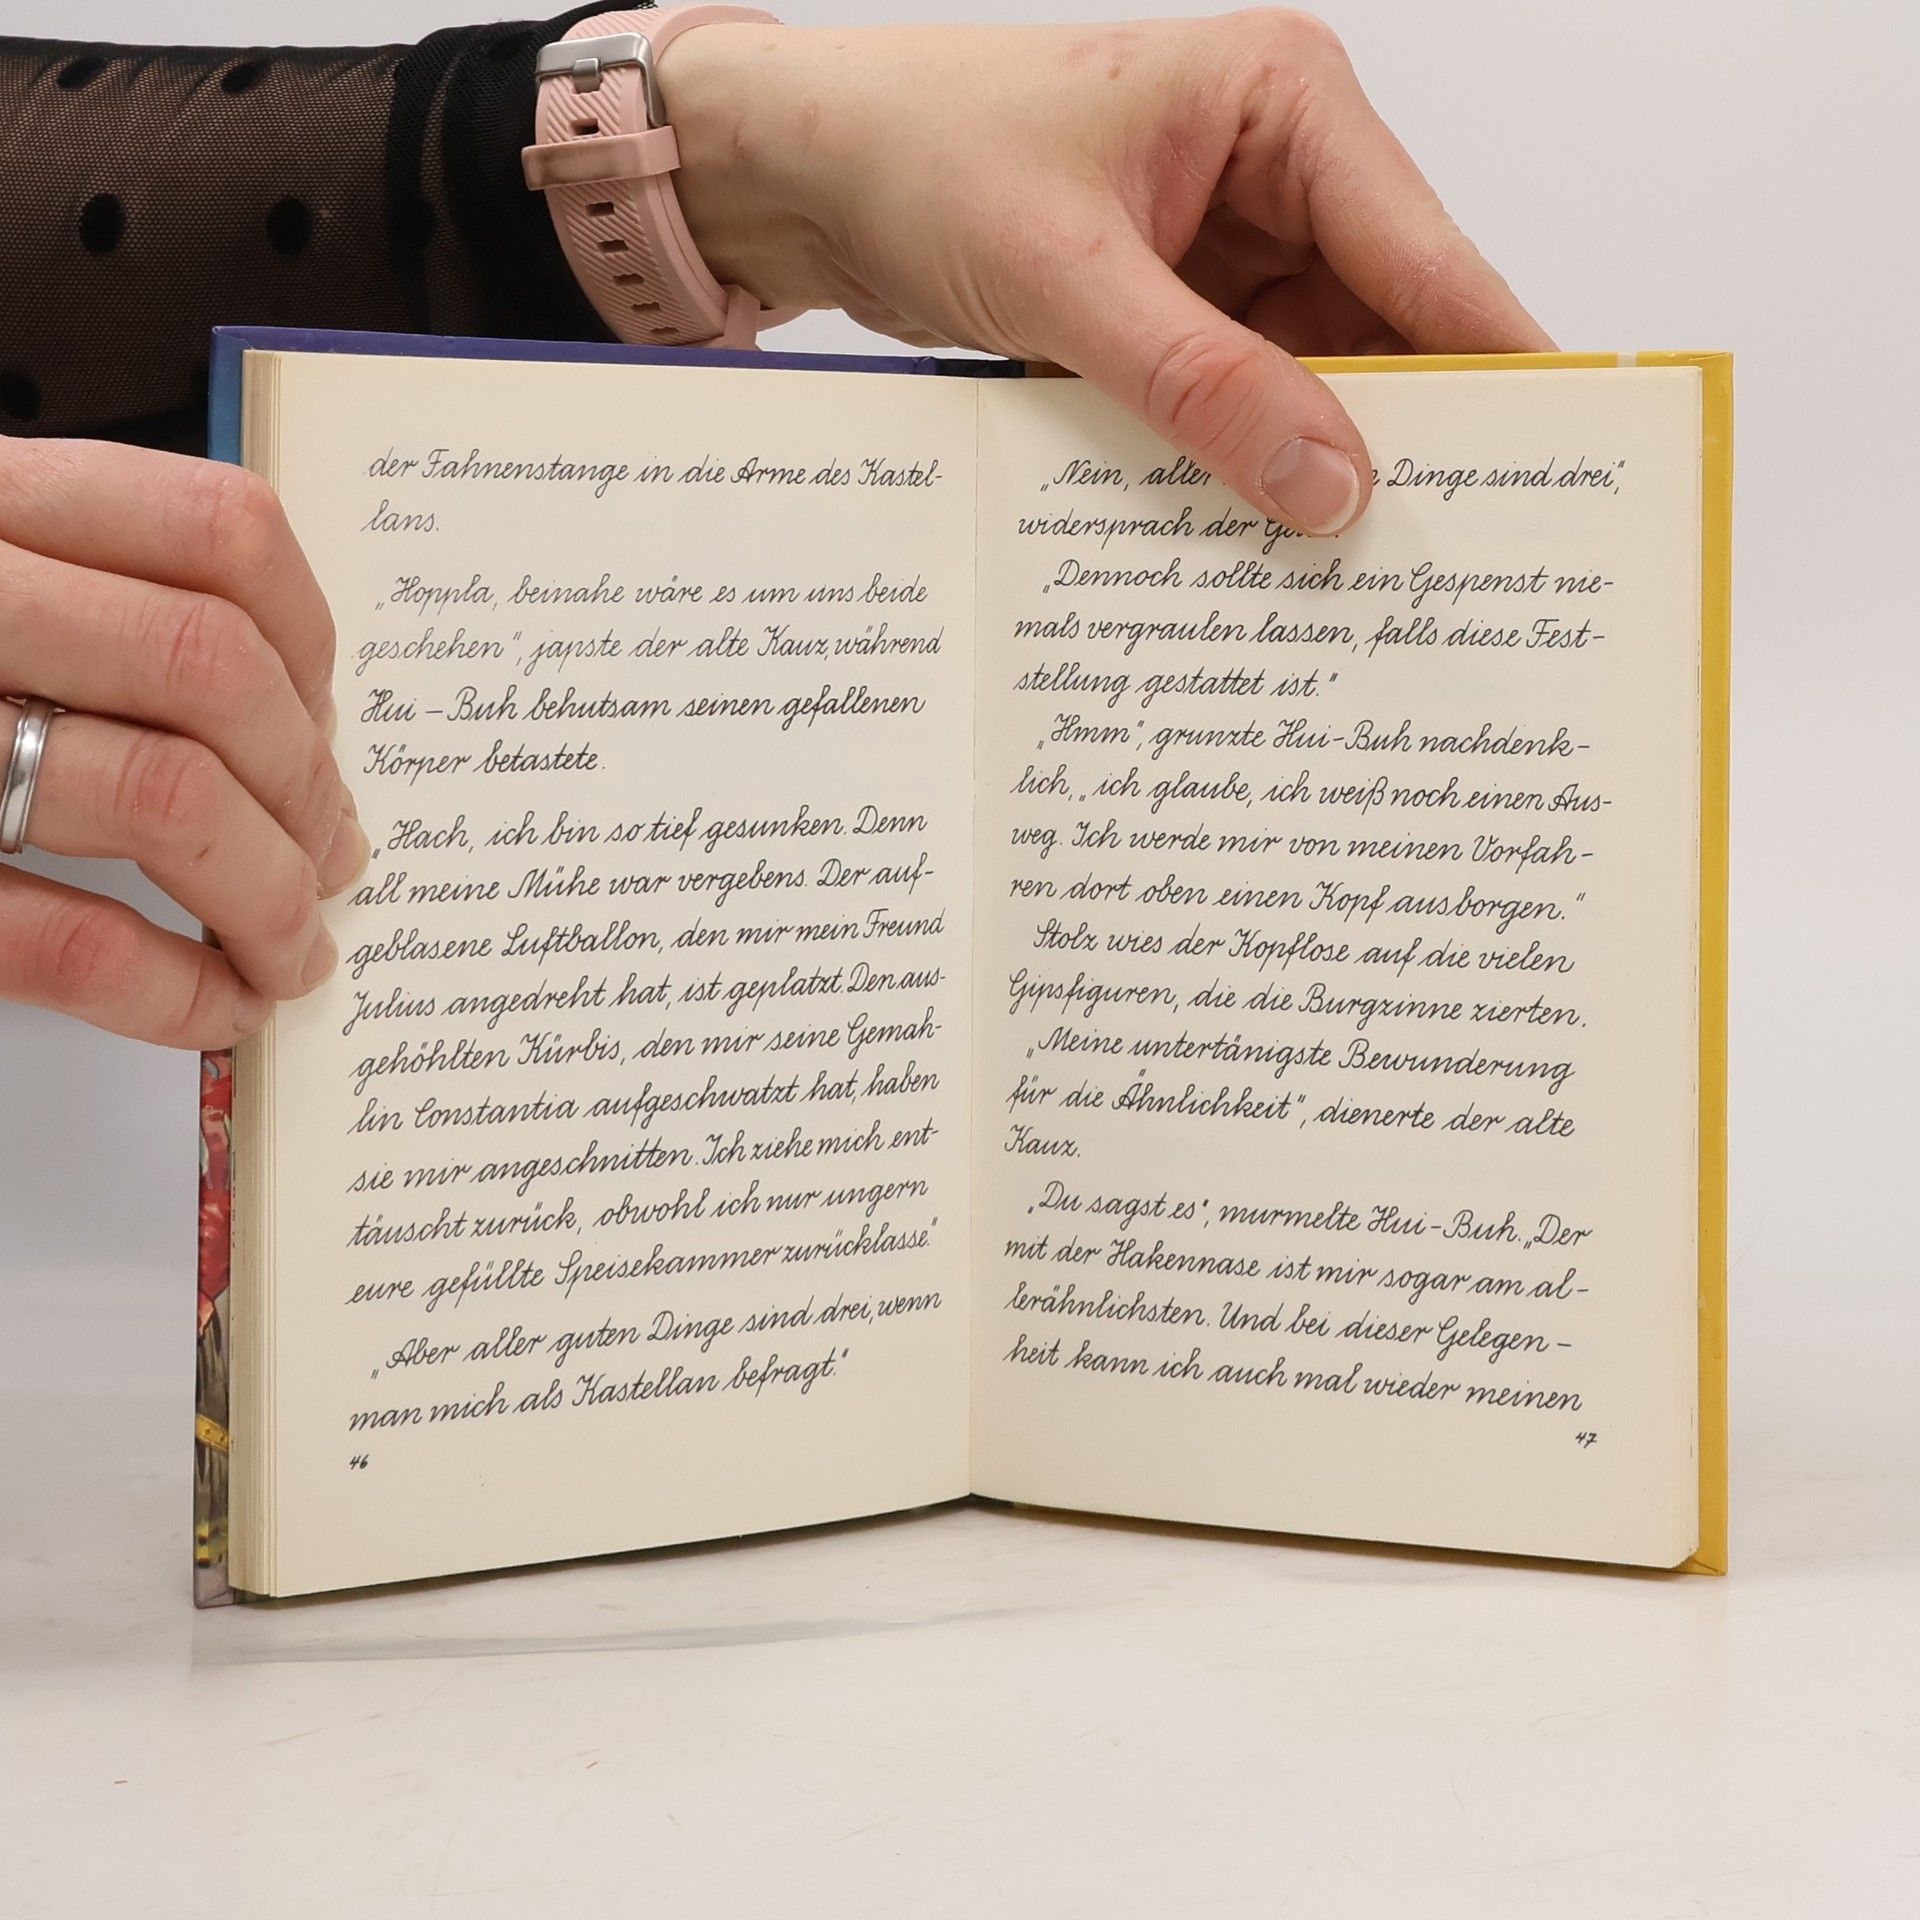 der Fahnenstange in die Arme des Kastel-
lans.
„Hoppla, beinahe wäre es um uns beide
geschehen“, japste der alte Kauz, während
Hui – Buh behutsam seinen gefallenen
Körper betastete.
„Hach, ich bin so tief gesunken. Denn
all meine Mühe war vergebens. Der auf-
geblasene Luftballon, den mir mein Freund
Julius angedreht hat, ist geplatzt. Den aus-
gehöhlten Kürbis, den mir seine Gemah-
lin Constantia aufgeschwatzt hat, haben
sie mir angeschnitten. Ich ziehe mich ent-
täuscht zurück, obwohl ich nur ungern
eure gefüllte Speisekammer zurücklasse.“
„Aber aller guten Dinge sind drei, wenn
man mich als Kastellan befragt.“
46
„Nein, aller Dinge sind drei“,
widersprach der
„Dennoch sollte sich ein Gespenst nie-
mals vergraulen lassen, falls diese Fest-
stellung gestattet ist.“
„Hmm“, grunzte Hui-Buh nachdenk-
lich, „ich glaube, ich weiß noch einen Aus-
weg. Ich werde mir von meinen Vorfah-
ren dort oben einen Kopf ausborgen.“
Stolz wies der Kopflose auf die vielen
Gipsfiguren, die die Burgzinne zierten.
„Meine untertänigste Bewunderung
für die Ähnlichkeit“, dienerte der alte
Kauz.
„Du sagst es“, murmelte Hui-Buh. „Der
mit der Hakennase ist mir sogar am al-
lerähnlichsten. Und bei dieser Gelegen-
heit kann ich auch mal wieder meinen
47